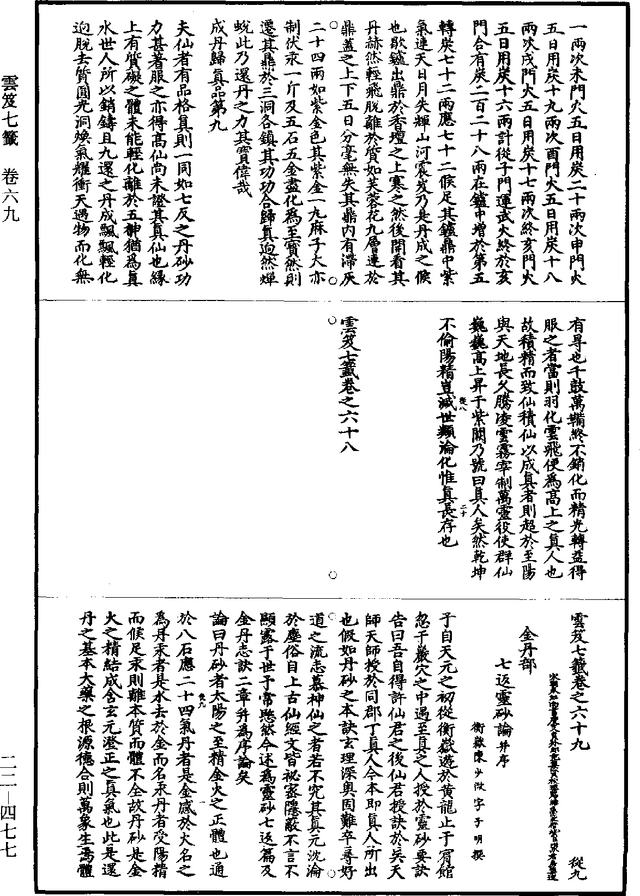 一兩次未門火五日用炭二十兩次申門火
五日用炭十九兩次酉門火五日用炭十八
兩次戌門火五日用炭十七兩次終亥門火
五日用炭十六兩計從子門運武火終於亥
門合有炭二百二十八兩在鑪中增於第五
轉炭七十二兩應七十二候足其鑪鼎中紫
氣連天日月失輝山河震岌乃是丹成之候
也歇鑪出鼎於香壇之上寒之然後開看其
丹赫然輕飛脫離於質如芙蓉花九層連於
鼎蓋之上下五日分毫無失其鼎內有滯灰
二十四兩如紫金色其紫金一九麻子大亦
制伏汞一斤及五石五金盡化為至寶然則
還其鼎於三洞各鎮其功功合歸真迥然蟬
蛻此乃還丹之力其寶偉哉
成丹歸真品第九
夫仙者有品格真則一同如七反之丹砂功
力甚著服之亦得高仙尚未證其真仙也緣
上有質礙之體未能輕化離於五神猶為真
水世人所以銷鑄且九還之丹成飄飄輕化
迥脫去質圓光洞煥氣耀衝天遇物而化無
有尋也千鼓萬鞴終不銷化而精光轉益得
服之者當則羽化雲飛便為高上之真人也
故積精而致仙積仙以成真者則超於至陽
與天地長久騰凌雲霧宰制萬靈役使群仙
巍巍高上昇于紫闕乃號曰真人矣然乾坤
不倫陽精豈減世類淪化惟真長存也
雲笈七籤卷之六十八
雲笈七籤卷之六十九
從九
金丹部
七返靈砂論并序
衡嶽陳少微字子明撰
子自天元之初從衡嶽遊於黃龍止于賓館
忽于巖穴之中遇至真之人授於靈砂要訣
告曰吾自得許仙君之後仙君授訣於吳天
師天師授於同郡丁真人今本即真人所出
也假如丹砂之本訣玄理深奧固難卒尋好
道之流志慕神仙之者若不究其真元沈淪
於塵俗自上古仙經文皆祕密隱蔽不言不
顯露于世于常愍然今述為靈砂七返篇及
金丹志訣二章并為序論矣
論曰丹砂者太陽之至精金火之正體也通
於八石應二十四氣丹者是金感於火名之
為丹汞者是水去於金而名汞丹者受陽精
而候足汞則離本質而體不全故丹砂是金
火之精結成含玄元澄正之真氣也此是還
丹之基本大藥之根源德合則萬象生焉體
雲笈七籤 卷六九
二二—四七七